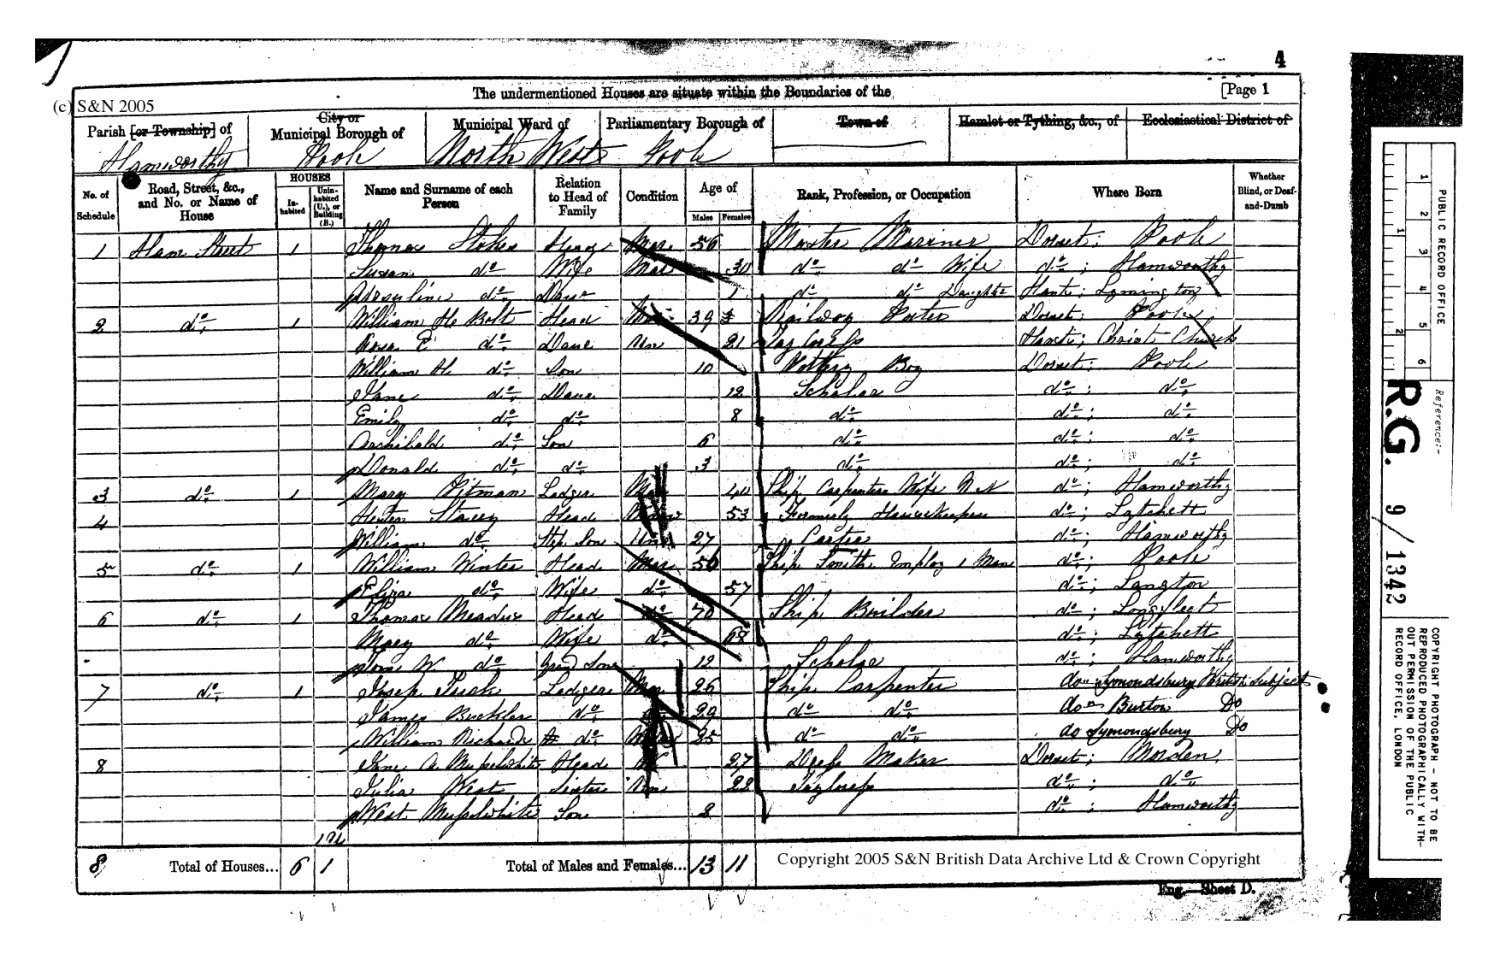 4
(c) S&N 2005
The undermentioned Houses are situate within the Boundaries of the
[Page 1
Parish [or Township] of
Hamworthy
City or
Municipal Borough of
Poole
Municipal Ward of
North West
Parliamentary Borough of
Poole
Town of
Hamlet or Tything, &c., of
Ecclesiastical District of
No. of Schedule
Road, Street, &c., and No. or Name of House
HOUSES
In-habited
Unin-habited (U.), or Building (B.)
Name and Surname of each Person
Relation to Head of Family
Condition
Age of
Males Females
Rank, Profession, or Occupation
Where Born
Whether Blind, or Deaf-and-Dumb
1 Ham Street 1 Thomas Stokes Head Mar 56 Master Mariner Dorset; Poole
Susan do Wife Mar 30 do do Wife do; Hamworthy
do Daur 1 do do Daughter Hants; Lymington
2 do 1 William H Bolt Head 39 Railway Porter Dorset; Poole
Rosa E do Daur Un 21 Hants; Christ Church
William H. do Son 10 Pottery Boy Dorset; Poole
Jane do Daur 12 Scholar do; do
Emily do do 8 do do; do
Archibald do Son 6 do do; do
Donald do do 3 do do; do
3 do 1 Mary Pitman Lodger 40 Ship Carpenters Wife do; Hamworthy
4 Stacey Head 53 Formerly Housekeeper do; Lytchett
William do Step Son Unm 27 do; Hamworthy
5 do 1 William Winter Head Mar 56 Ship Smith Employ 1 Man do; Poole
Eliza do Wife do 57 do; Langton
6 do 1 Thomas Meadus Head do 70 Ship Builder do; Longfleet
Mary do Wife do 68 do; Lytchett
W do Grand Son 12 Scholar do; Hamworthy
7 do 1 Lodger 26 Ship Carpenter do Symondsbury British Subject
James Buckler do 29 do do do Burton Do
William Richards do 25 do do do Symondsbury Do
8 Jane A Musselwhite Head 27 Dress Maker Dorset; Morden
Julia West Sister Unm 22 Tayloress do; do
West Musselwhite Son 2 do; Hamworthy
8 Total of Houses... 6 1 Total of Males and Females... 13 11
Copyright 2005 S&N British Data Archive Ltd & Crown Copyright
Eng.—Sheet D.
PUBLIC RECORD OFFICE
1 2 3 4 5 6
1 2
Reference:-
R.G. 9/1342
COPYRIGHT PHOTOGRAPH - NOT TO BE
REPRODUCED PHOTOGRAPHICALLY WITH-
OUT PERMISSION OF THE PUBLIC
RECORD OFFICE, LONDON